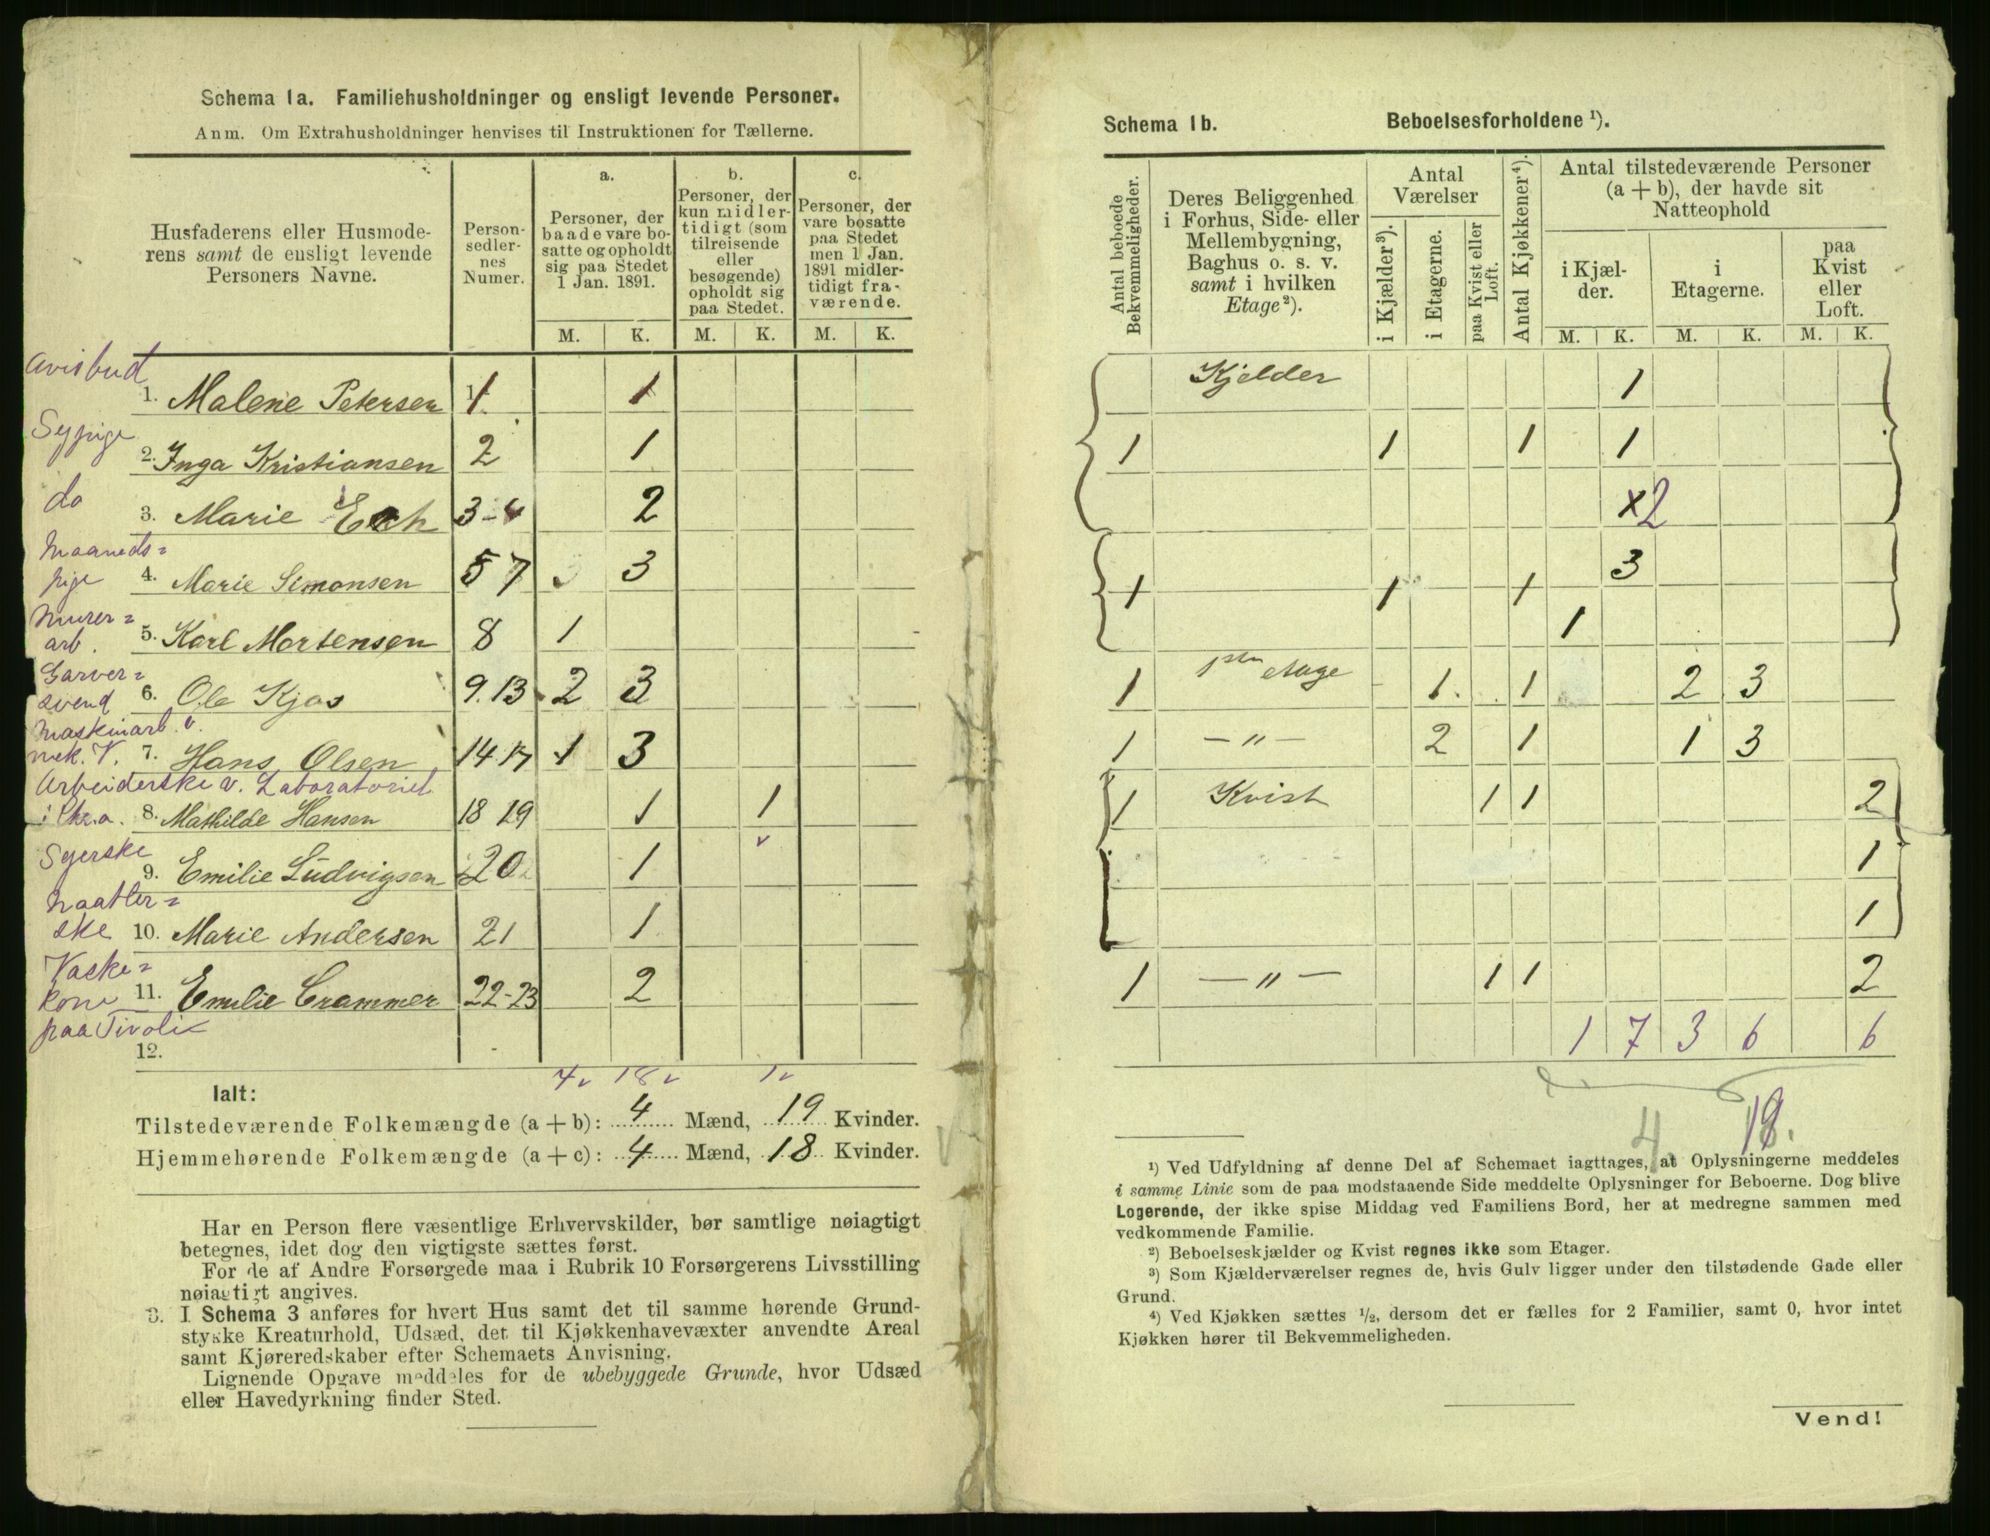 Schema 1a. Familiehusholdninger og ensligt levende Personer.
Anm. Om Extrahusholdninger henvises til Instruktionen for Tællerne.
Husfaderens eller Husmoderens samt de ensligt levende Personers Navne.
Personsedlernes Numer.
a.
Personer, der baade vare bosatte og opholdt sig paa Stedet 1 Jan. 1891.
b.
Personer, der kun midlertidigt (som tilreisende eller besøgende) opholdt sig paa Stedet.
c.
Personer, der vare bosatte paa Stedet men 1 Jan. 1891 midlertidigt fraværende.
M. K. M. K. M. K.
Avisbud
1. Malene Petersen 1 1
Sypige
2. Inga Kristiansen 2 1
do
3. Marie 3-4 2
Maaneds=
pige 4. Marie Simonsen 5 7 3
Murer=
arb. 5. Karl Mortensen 8 1
Garver=
svend 6. Ole Kjos 9.13 2 3
Maskinarb. v.
mek. V. 7. Hans Olsen 14 17 1 3
Arbeiderske v. Laboratoriet
i Chr.a. 8. Mathilde Hansen 18 19 1 1
Syerske
9. Emilie Ludvigsen 20 1
Naatler=
ske 10. Marie Andersen 21 1
Vaske=
kone 11. Emilie Crammer 22-23 2
paa Tivoli
12.
4 18 1
Ialt:
Tilstedeværende Folkemængde (a + b): 4 Mænd, 19 Kvinder.
Hjemmehørende Folkemængde (a + c): 4 Mænd, 18 Kvinder.
Har en Person flere væsentlige Erhvervskilder, bør samtlige nøiagtigt
betegnes, idet dog den vigtigste sættes først.
For de af Andre Forsørgede maa i Rubrik 10 Forsørgerens Livsstilling
nøiagtigt angives.
3. I Schema 3 anføres for hvert Hus samt det til samme hørende Grund-
stykke Kreaturhold, Udsæd, det til Kjøkkenhavevæxter anvendte Areal
samt Kjøreredskaber efter Schemaets Anvisning.
Lignende Opgave meddeles for de ubebyggede Grunde, hvor Udsæd
eller Havedyrkning finder Sted.
Schema 1b. Beboelsesforholdene ¹).
Antal beboede Bekvemmeligheder.
Deres Beliggenhed i Forhus, Side- eller Mellembygning, Baghus o. s. v. samt i hvilken Etage²).
Antal Værelser
i Kjælder³).
i Etagerne.
paa Kvist eller Loft.
Antal Kjøkkener⁴).
Antal tilstedeværende Personer (a + b), der havde sit Natteophold
i Kjælder.
i Etagerne.
paa Kvist eller Loft.
M. K. M. K. M. K.
Kjelder 1
1 1 1 1
x2
3
1 1 1
1
1 1ste etage 1 1 2 3
1 — „ — 2 1 1 3
1 Kvist 1 1 2
1
1
1 — „ — 1 1 2
1 7 3 6 6
4 18.
¹) Ved Udfyldning af denne Del af Schemaet iagttages, at Oplysningerne meddeles
i samme Linie som de paa modstaaende Side meddelte Oplysninger for Beboerne. Dog blive
Logerende, der ikke spise Middag ved Familiens Bord, her at medregne sammen med
vedkommende Familie.
²) Beboelseskjælder og Kvist regnes ikke som Etager.
³) Som Kjælderværelser regnes de, hvis Gulv ligger under den tilstødende Gade eller
Grund.
⁴) Ved Kjøkken sættes ½, dersom det er fælles for 2 Familier, samt 0, hvor intet
Kjøkken hører til Bekvemmeligheden.
Vend!